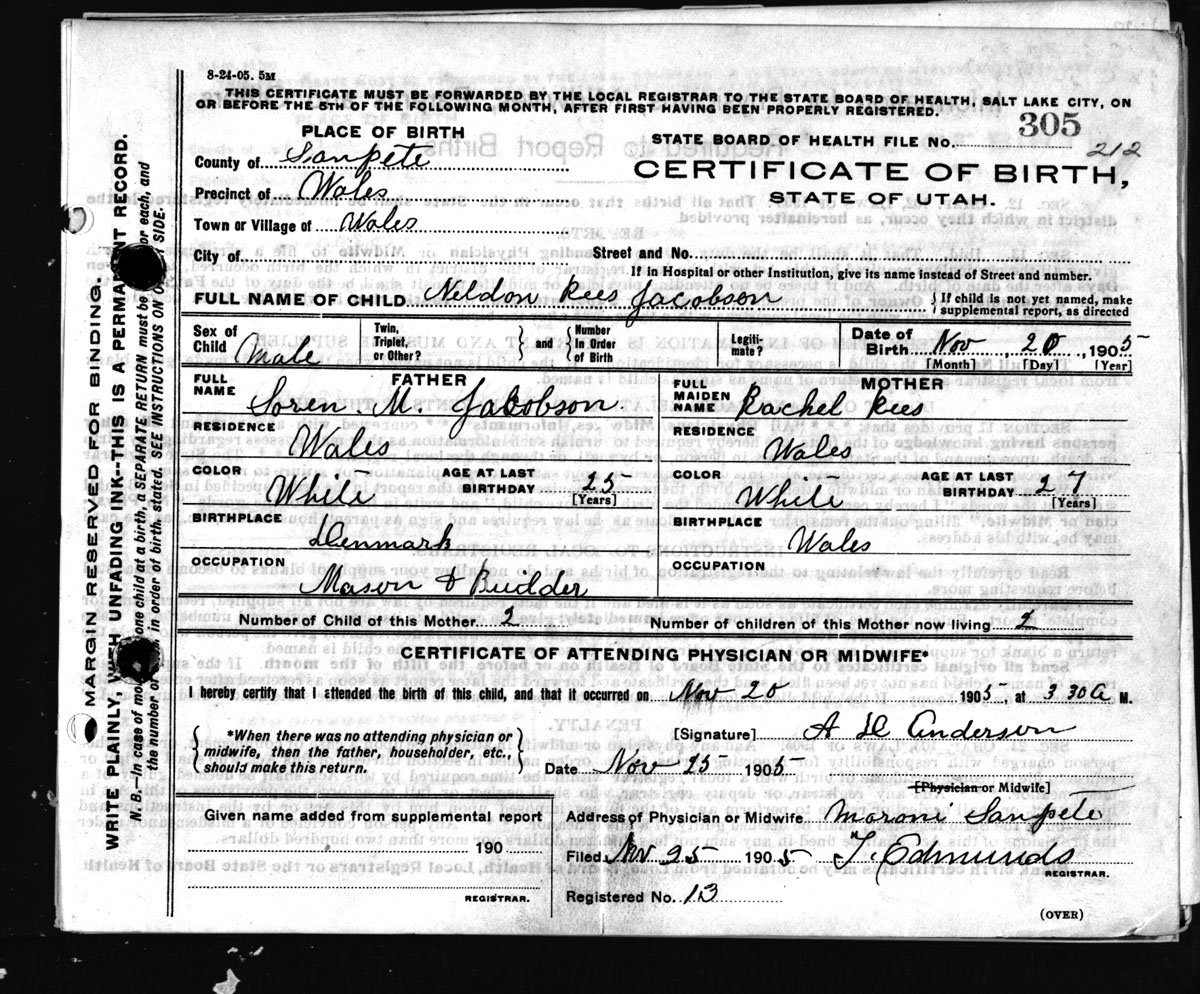 8-24-05. 5M
THIS CERTIFICATE MUST BE FORWARDED BY THE LOCAL REGISTRAR TO THE STATE BOARD OF HEALTH, SALT LAKE CITY, ON
OR BEFORE THE 5TH OF THE FOLLOWING MONTH, AFTER FIRST HAVING BEEN PROPERLY REGISTERED.
305
PLACE OF BIRTH
STATE BOARD OF HEALTH FILE No.
212
County of Sanpete
CERTIFICATE OF BIRTH,
Precinct of Wales
STATE OF UTAH.
Town or Village of Wales
City of
Street and No.
If in Hospital or other Institution, give its name instead of Street and number.
FULL NAME OF CHILD Neldon Rees Jacobson
{ If child is not yet named, make
supplemental report, as directed
Sex of Child Male
Twin, Triplet, or Other?
} and {
Number In Order of Birth
Legiti-mate?
Date of Birth Nov, 20, 1905
[Month] [Day] [Year]
FATHER
FULL NAME Soren M. Jacobson
RESIDENCE Wales
COLOR White AGE AT LAST BIRTHDAY 25 [Years]
BIRTHPLACE Denmark
OCCUPATION Mason & Builder
MOTHER
FULL MAIDEN NAME Rachel Rees
RESIDENCE Wales
COLOR White AGE AT LAST BIRTHDAY 27 [Years]
BIRTHPLACE Wales
OCCUPATION
Number of Child of this Mother 2 Number of children of this Mother now living 2
CERTIFICATE OF ATTENDING PHYSICIAN OR MIDWIFE*
I hereby certify that I attended the birth of this child, and that it occurred on Nov 20 1905, at 3 30 a M.
{ *When there was no attending physician or
midwife, then the father, householder, etc.
should make this return. }
[Signature] A D Anderson
Date Nov 25 1905
[Physician or Midwife]
Given name added from supplemental report
190
REGISTRAR.
Address of Physician or Midwife Moroni Sanpete
Filed Nov 25 1905 T. Edmunds
REGISTRAR.
Registered No. 13
(OVER)
MARGIN RESERVED FOR BINDING.
WRITE PLAINLY, WITH UNFADING INK--THIS IS A PERMANENT RECORD.
N. B.—In case of one child at a birth, a SEPARATE RETURN must be for each, and
the number in order of birth, stated. SEE INSTRUCTIONS ON SIDE.